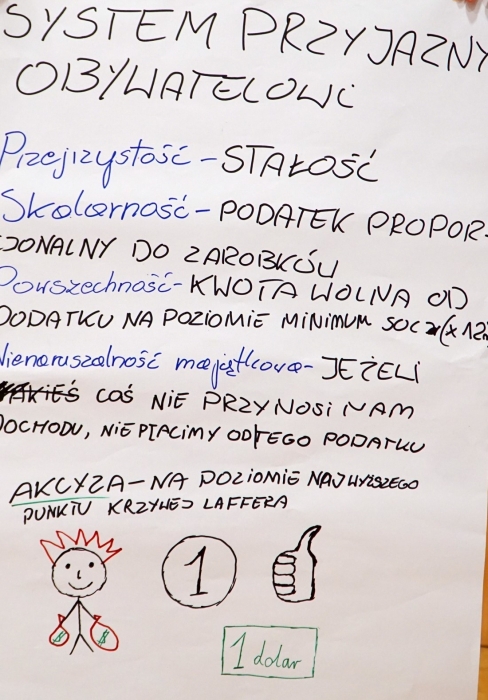 SYSTEM PRZYJAZNY
OBYWATELOWI
Przejrzystość - STAŁOŚĆ
Skalarność - PODATEK PROPOR-
CJONALNY DO ZAROBKÓW
Powszechność - KWOTA WOLNA OD
PODATKU NA POZIOMIE MINIMUM SOC (x 12
Nienaruszalność majątkowa - JEŻELI
COŚ NIE PRZYNOSI NAM
DOCHODU, NIE PŁACIMY OD TEGO PODATKU
AKCYZA - NA POZIOMIE NAJWYŻSZEGO
PUNKTU KRZYWEJ LAFFERA
1
$ $
1 dolar